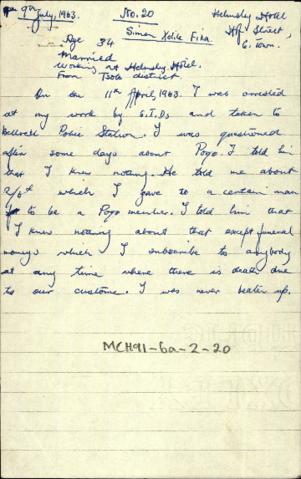 9th July, 1963.
No. 20
Helmsley Hotel
Street,
C. Town.
Simon Xolile Fika.
Age 34
Married
Working at Helmsley Hotel.
From Tsolo district
On 11th April, 1963. I was arrested
at my work by C.I.Ds and taken to
Bellville Police Station. I was questioned
after some days about Poqo. I told him
that I knew nothing. He told me about
2/6d which I gave to a certain man
to be a Poqo member. I told him that
I knew nothing about that except funeral
moneys which I subscribe to anybody
at any time where there is death due
to our custome. I was never beaten up.
MCH91-6a-2-20